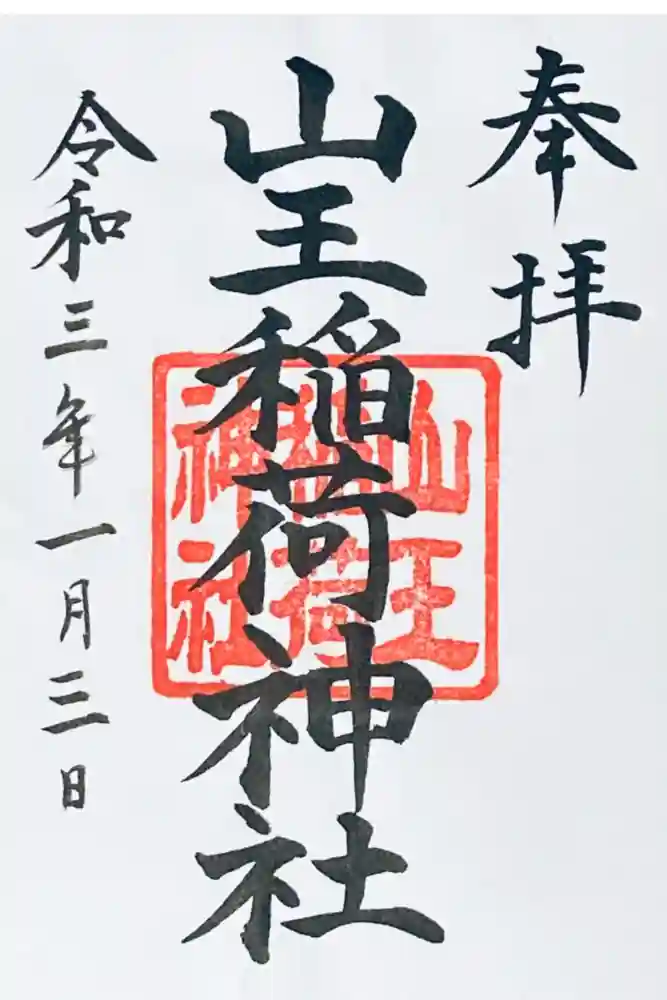 奉拝
山王稲荷神社
山王
稲荷
神社
令和三年一月三日